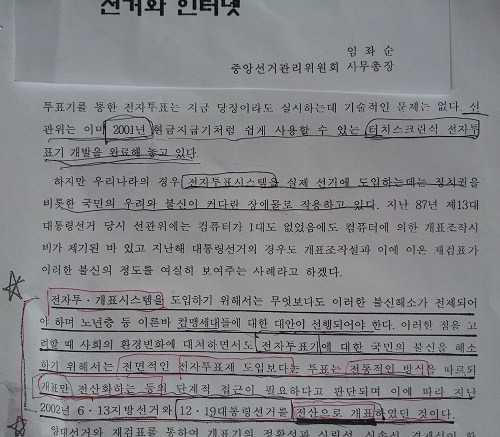 선거와 인터넷
임 좌 순
중앙선거관리위원회 사무총장
투표기를 통한 전자투표는 지금 당장이라도 실시하는데 기술적인 문제는 없다. 선
관위는 이미 2001년 현금지급기처럼 쉽게 사용할 수 있는 터치스크린식 전자투
표기 개발을 완료해 놓고 있다.
하지만 우리나라의 경우 전자투표시스템을 실제 선거에 도입하는데는 정치권을
비롯한 국민의 우려와 불신이 커다란 장애물로 작용하고 있다. 지난 87년 제13대
대통령선거 당시 선관위에는 컴퓨터가 1대도 없었음에도 컴퓨터에 의한 개표조작시
비가 제기된 바 있고 지난해 대통령선거의 경우도 개표조작설과 이에 이은 재검표가
이러한 불신의 정도를 여실히 보여주는 사례라고 하겠다.
전자투·개표시스템을 도입하기 위해서는 무엇보다도 이러한 불신해소가 전제되어
야 하며 노년층 등 이른바 컴맹세대들에 대한 대안이 선행되어야 한다. 이러한 점을 고
려할 때 사회의 환경변화에 대처하면서도 전자투표기에 대한 국민의 불신을 해소
하기 위해서는 전면적인 전자투표제 도입보다는 투표는 전통적인 방식을 따르되
개표만 전산화하는 등의 단계적 접근이 필요하다고 판단되며 이에 따라 지난
2002년 6·13지방선거와 12·19대통령선거를 전산으로 개표하였던 것이다.
양대선거와 재검표를 통하여 개표기의 정확성과 신뢰성, 신속성, 경제성이 확